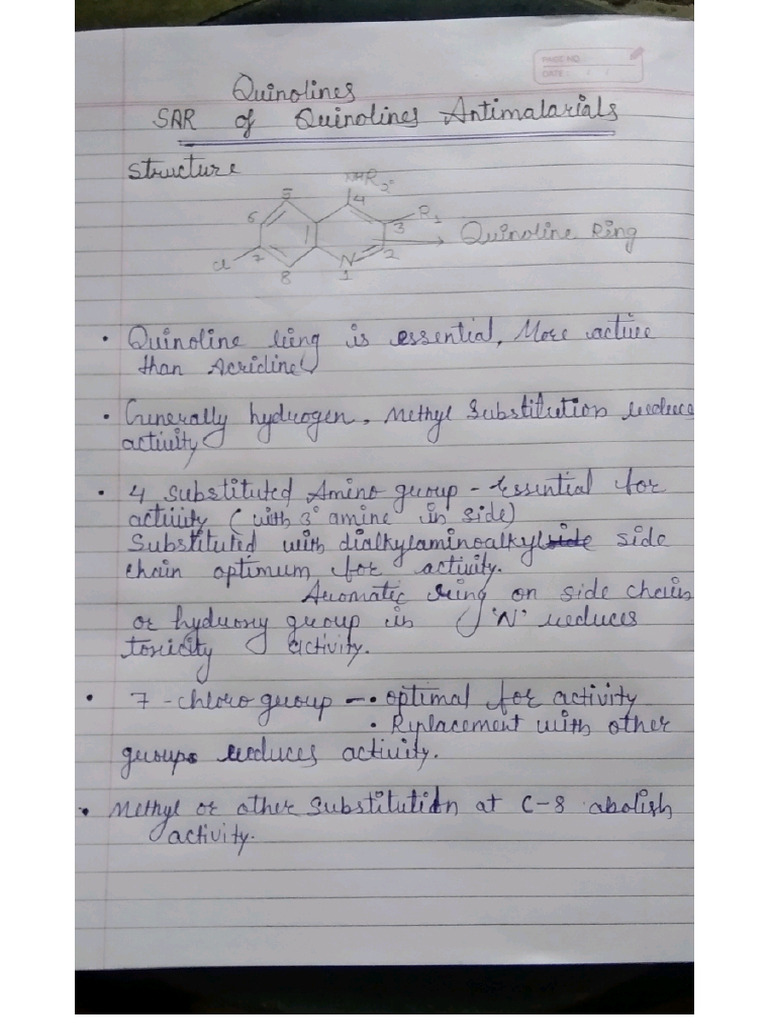 PAGE NO.
DATE: / /
Quinolines
SAR of Quinolines Antimalarials
Structure
NHR2
5 4
6 3 R1
Quinoline Ring
Cl 7 N 2
8 1
• Quinoline ring is essential, More active
than Acridine
• Generally hydrogen, Methyl Substitution reduce
activity
• 4 substituted Amino group - Essential for
activity (with 3° amine in side)
Substituted with dialkylaminoalkyl side side
chain optimum for activity.
Aromatic ring on side chain
or hydroxy group in 'N' reduces
toxicity activity.
• 7 - chloro group - • optimal for activity
• Replacement with other
groups reduces activity.
• Methyl or other Substitution at C-8 abolish
activity.